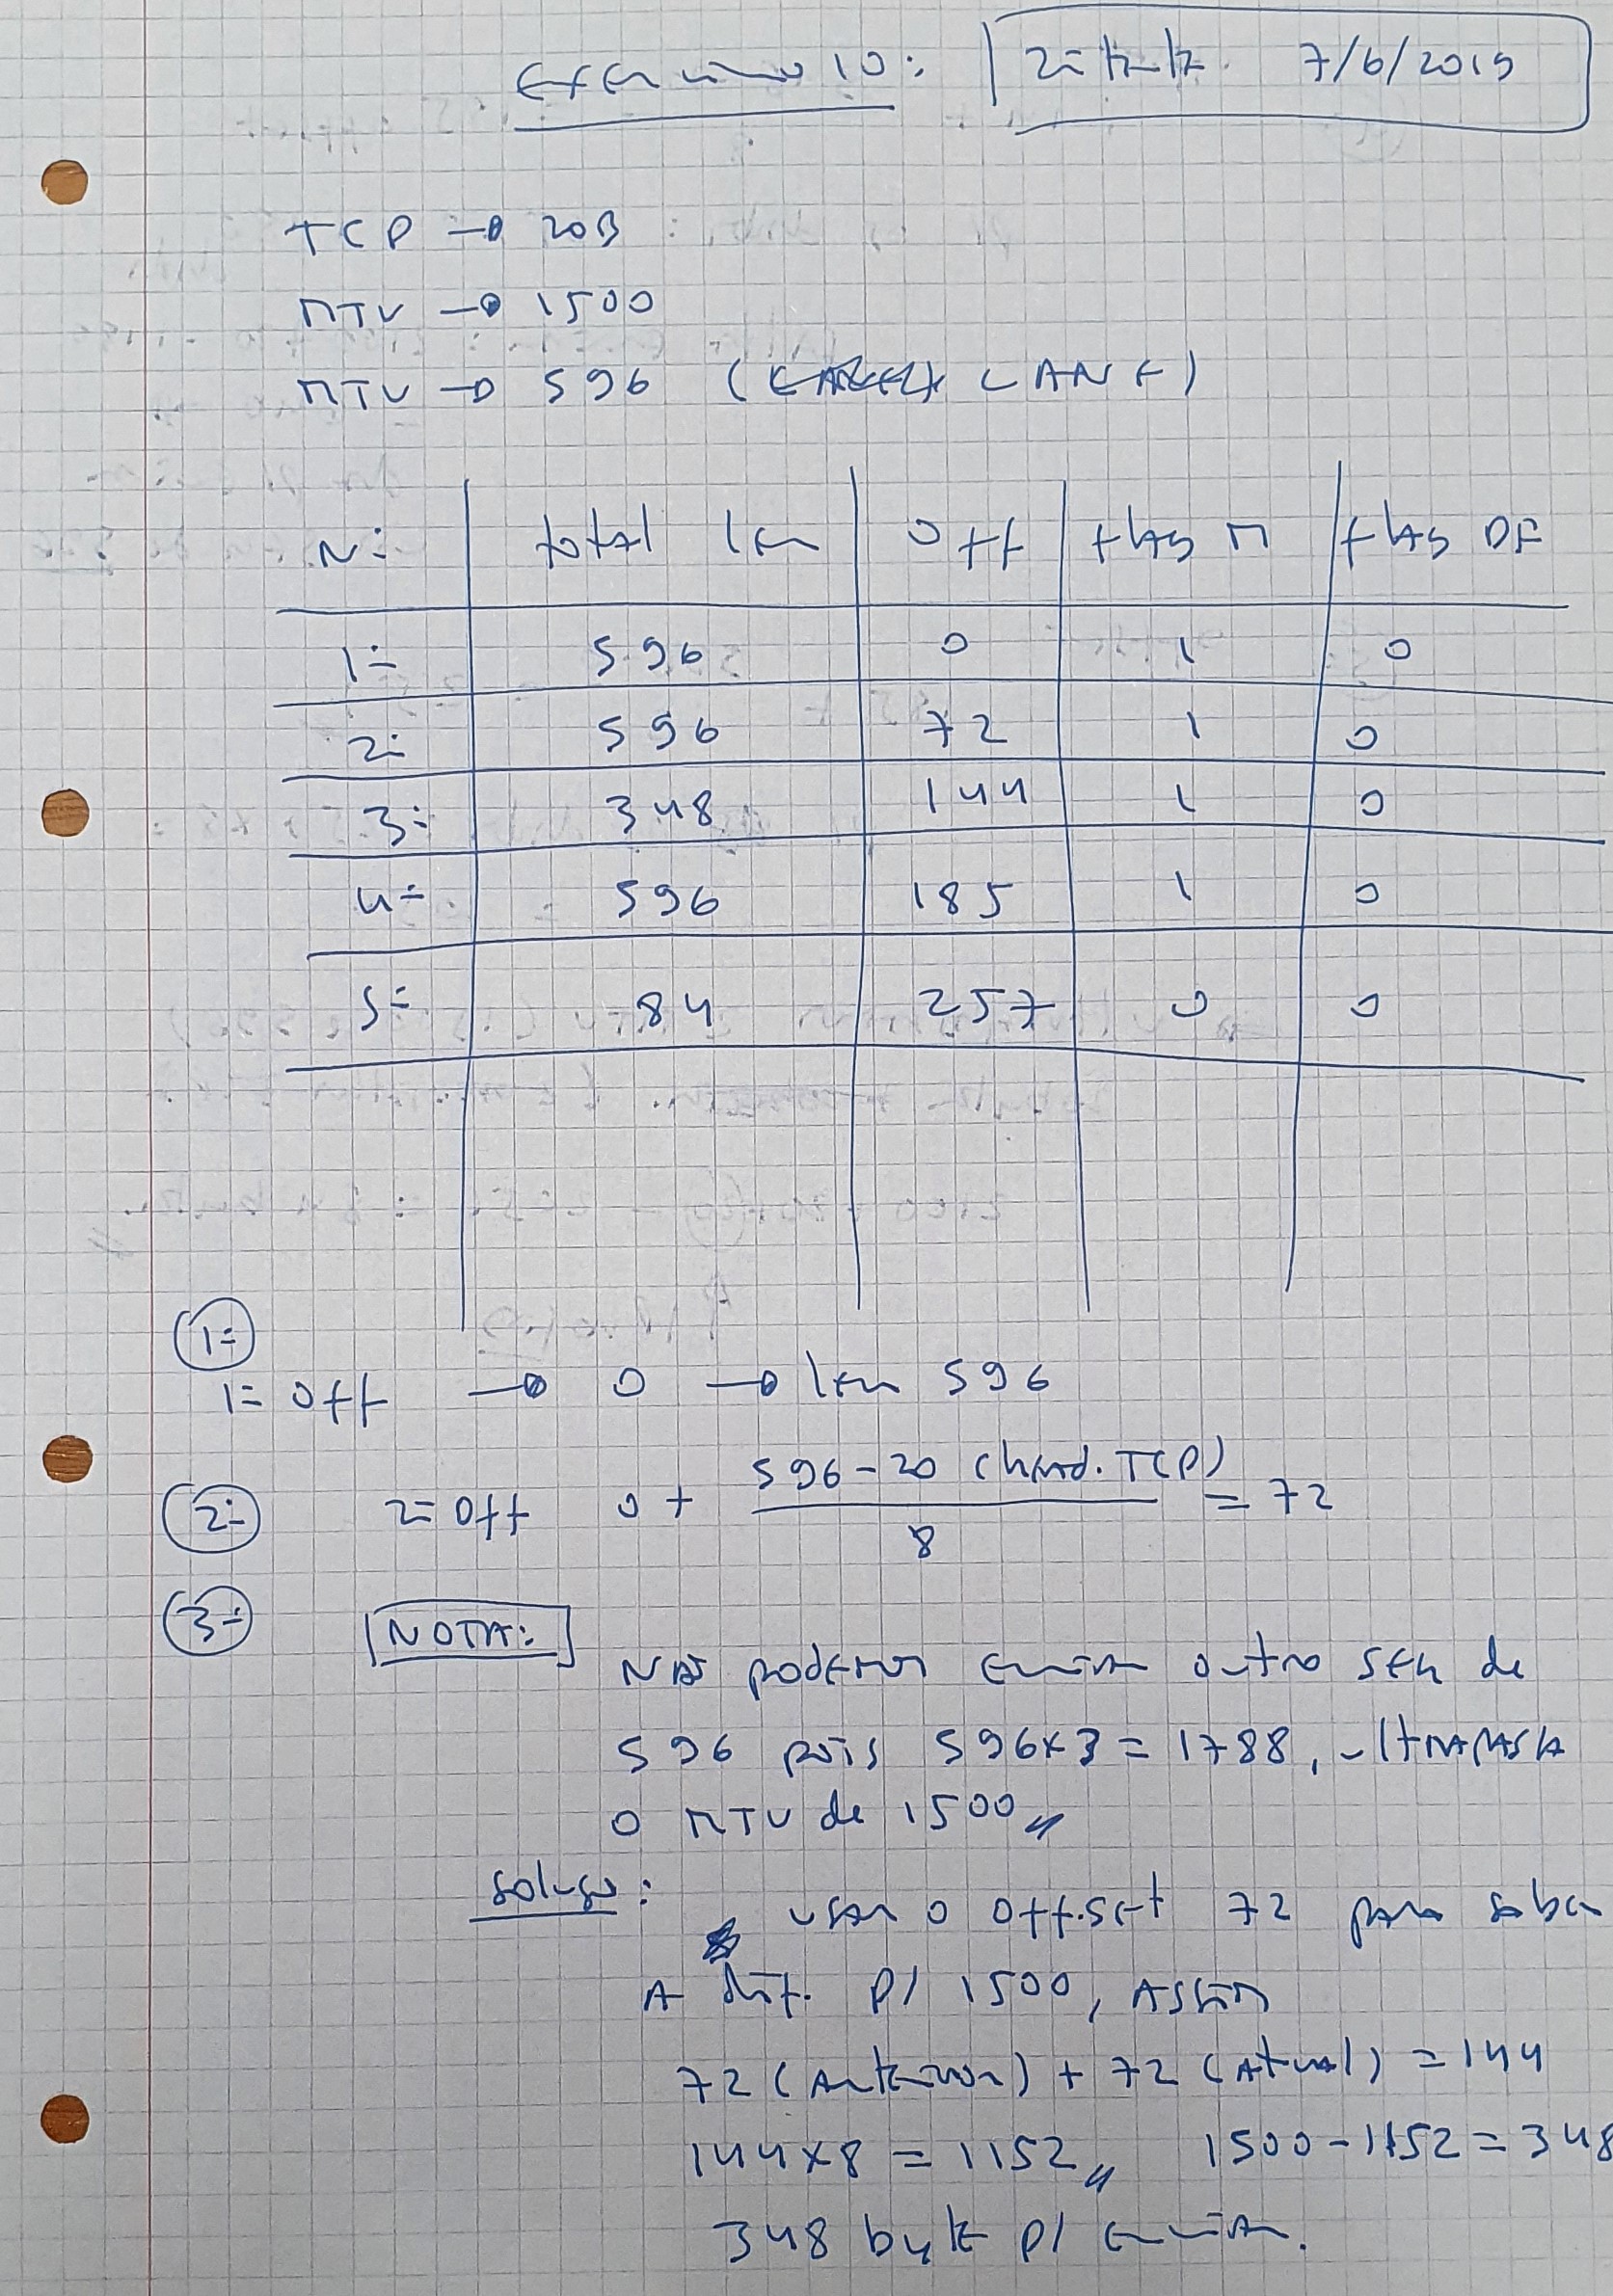 Exercicio 10: 7/6/2019
TCP → 20B
MTU → 1500
MTU → 596 (LAN E)
Nº total len Off flag M flag DF
1º 596 0 1 0
2º 596 72 1 0
3º 348 144 1 0
4º 596 185 1 0
5º 84 257 0 0
1º
1º Off → 0 → len 596
2º 2º Off 0 + 596-20 (head. TCP) / 8 = 72
3º NOTA:
Não podemos enviar outro seg de
596 pois 596x3 = 1788, ultrapassa
o MTU de 1500,,
solução:
usar o Off.set 72 para saber
A dif. p/ 1500, Assim
72 (Anterior) + 72 (Atual) = 144
144x8 = 1152,, 1500-1152 = 348
348 byte p/ enviar.